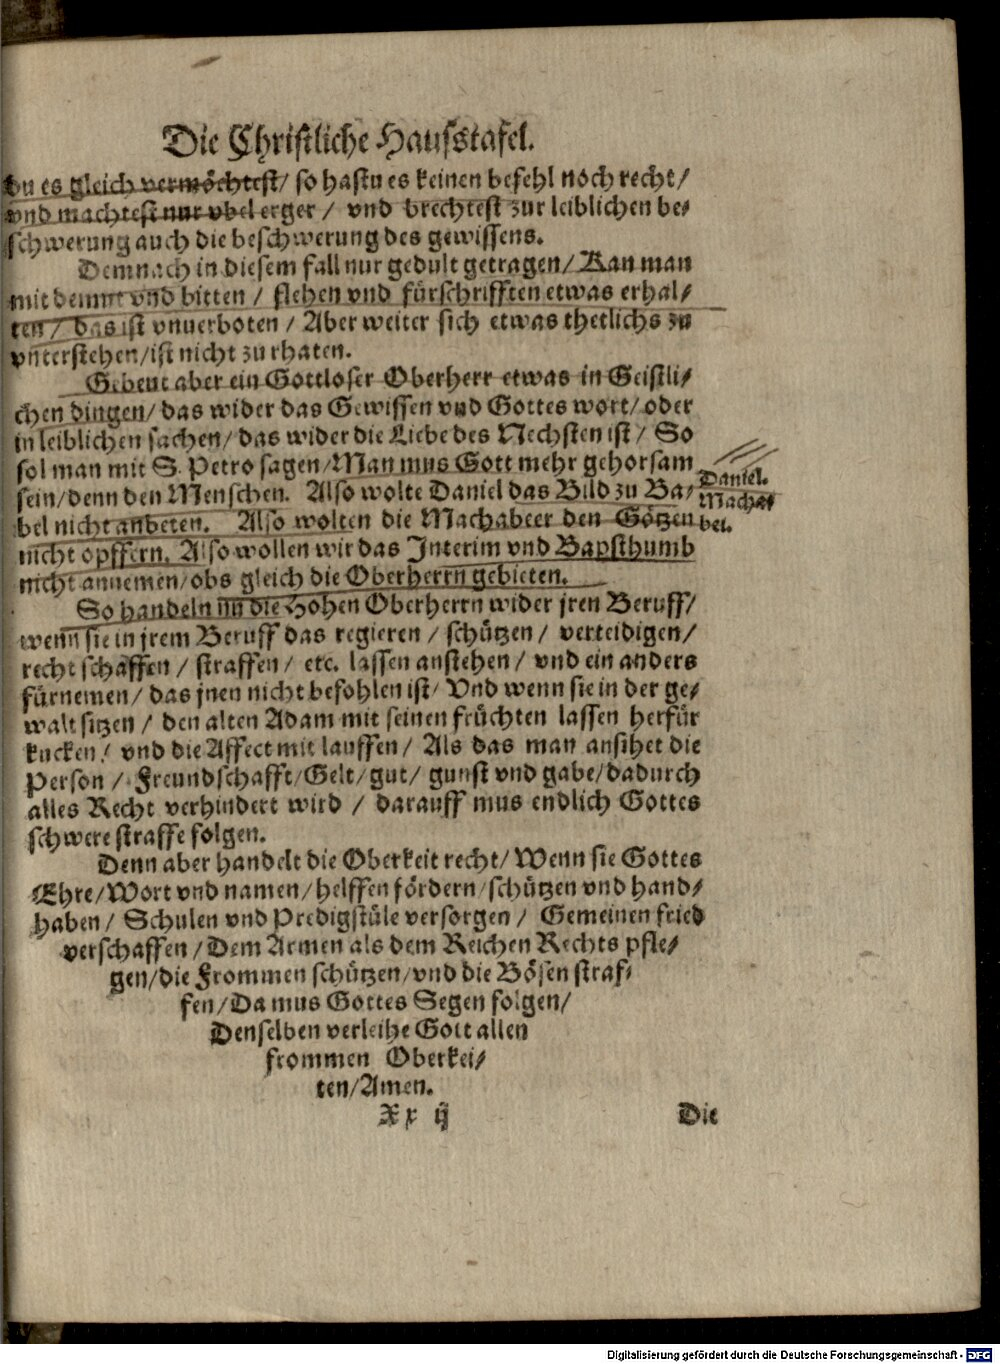 Die Christliche Hausstafel.
du es gleich vermöchtest/ so hastu es keinen befehl noch recht/
vnd machtest nur vbel erger / vnd brechtest zur leiblichen be⸗
schwerung auch die beschwerung des gewissens.
Demnach in diesem fall nur gedult getragen/ Kan man
mit demut vnd bitten / flehen vnd fürschrifften etwas erhal⸗
ten / das ist vnuerboten / Aber weiter sich etwas thetlichs zu
vnterstehen/ist nicht zu rhaten.
Gebeut aber ein Gottloser Oberherr etwas in Geistli⸗
chen dingen/ das wider das Gewissen vnd Gottes wort/ oder
in leiblichen sachen/ das wider die Liebe des Nechsten ist / So
sol man mit S. Petro sagen/Man mus Gott mehr gehorsam
sein/denn den Menschen. Also wolte Daniel das Bild zu Ba⸗
bel nicht anbeten. Also wolten die Machabeer den Götzen
nicht opffern. Also wollen wir das Interim vnd Bapsthumb
nicht annemen/obs gleich die Oberherrn gebieten.
Daniel.
Macha⸗
bei.
So handeln nu die Hohen Oberherrn wider jren Beruff/
wenn sie in jrem Beruff das regieren / schützen / verteidigen/
recht schaffen / straffen / etc. lassen anstehen / vnd ein anders
fürnemen / das jnen nicht befohlen ist/ Vnd wenn sie in der ge⸗
walt sitzen / den alten Adam mit seinen früchten lassen herfür
kucken / vnd die Affect mit lauffen / Als das man ansihet die
Person / Freundschafft/Gelt/ gut/ gunst vnd gabe/dadurch
alles Recht verhindert wird / darauff mus endlich Gottes
schwere straffe folgen.
Denn aber handelt die Oberkeit recht/ Wenn sie Gottes
Ehre/Wort vnd namen/helffen fördern/schützen vnd hand⸗
haben / Schulen vnd Predigstüle versorgen / Gemeinen fried
verschaffen / Dem Armen als dem Reichen Rechts pfle⸗
gen/die Frommen schützen/vnd die Bösen straf⸗
fen/Da mus Gottes Segen folgen/
Denselben verleihe Gott allen
frommen Oberkei⸗
ten/Amen.
Xx ij Die
Digitalisierung gefördert durch die Deutsche Forschungsgemeinschaft - DFG